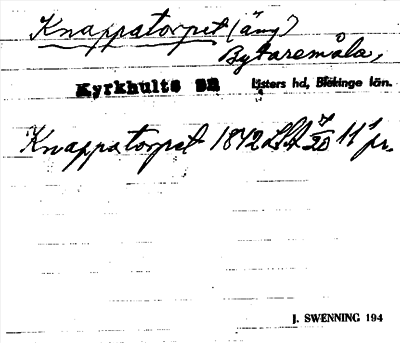 Knappatorpet (äng)
Bytaremåla,
Kyrkhults sn Listers hd, Blekinge län.
Knappatorpet 1842 LSA 7/20 11' pr.
J. SWENNING 194